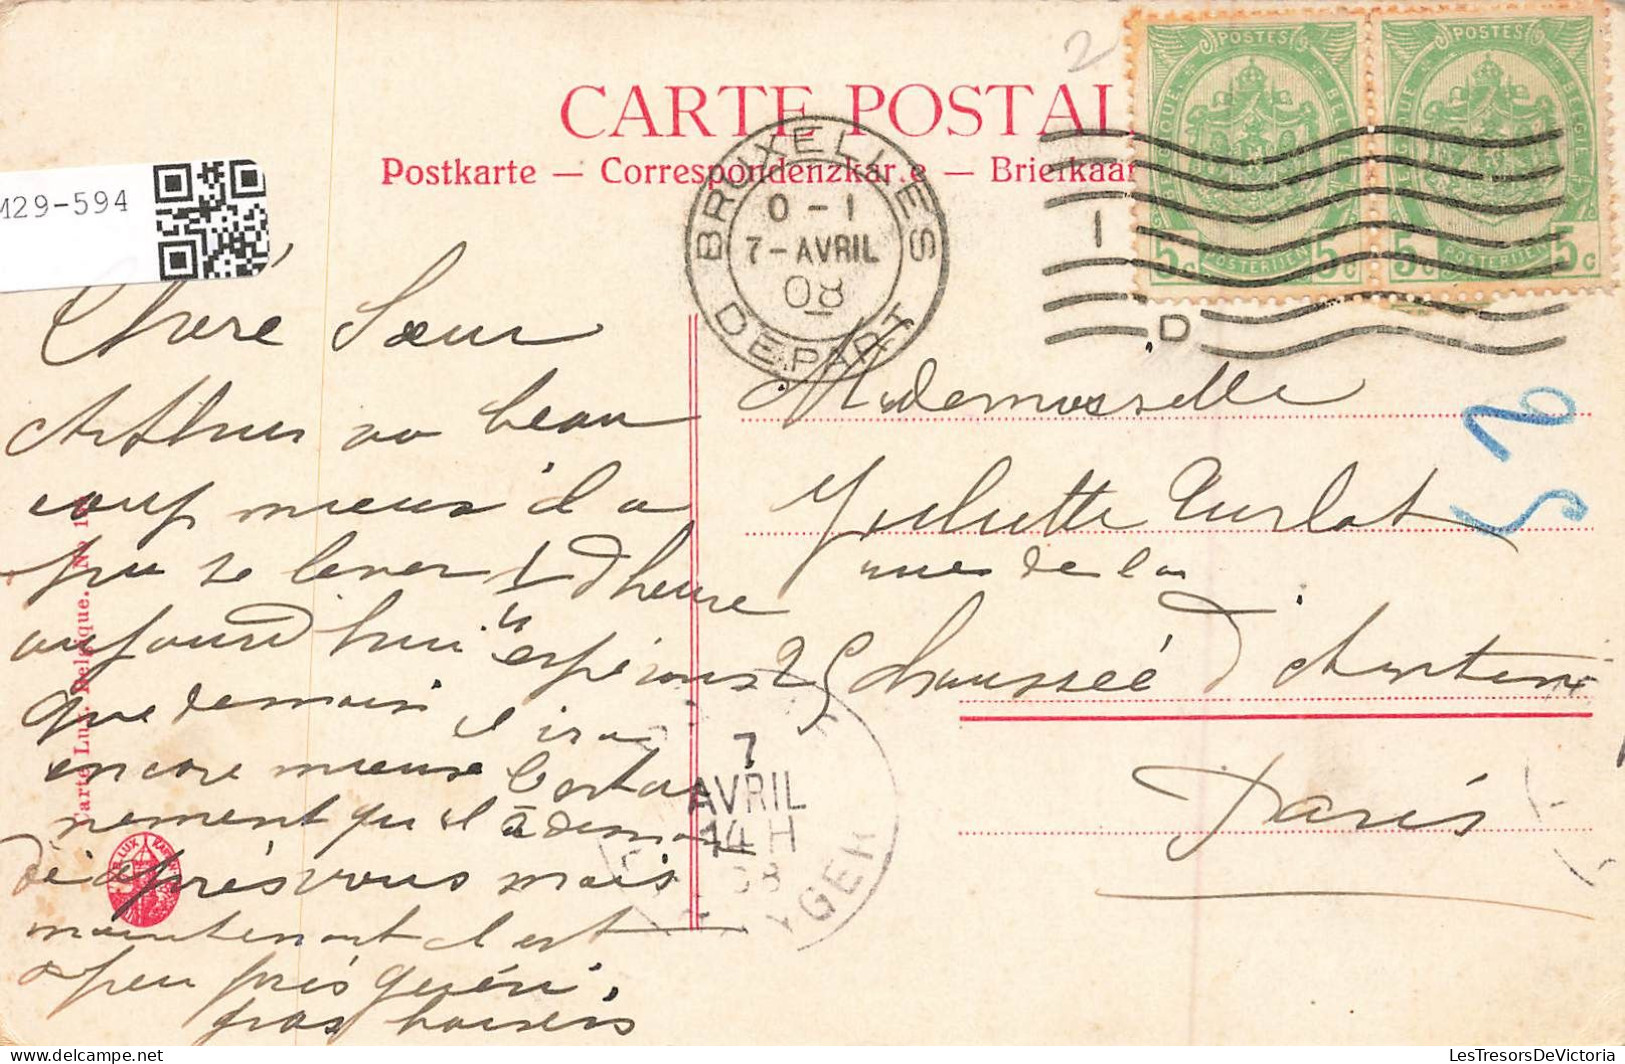 CARTE POSTAL
Postkarte — Correspondenzkar e — Briefkaar
M29-594
BRUXELLES
0 - 1
7 - AVRIL
08
DEPART
1
D
POSTES
BELGIQUE BELGIE
5c POSTERIJEN 5c
POSTES
BELGIQUE BELGIE
5c POSTERIJEN 5c
2
52
Chère Sœur
Arthur va beau
coup mieux il a
pu se lever 1 d heure
aujourd'hui espérons
que demain il ira
encore mieux Certai
nement qu'il à deman
dé après vous mais
maintenant il est
a peu près guéri.
gros baisers
Mademoiselle
Juliette Turlot
rue de la
25 Chaussée d'Antin
Paris
7
AVRIL
14 H
08
Carte Lux. Belgique. No 1
LUX